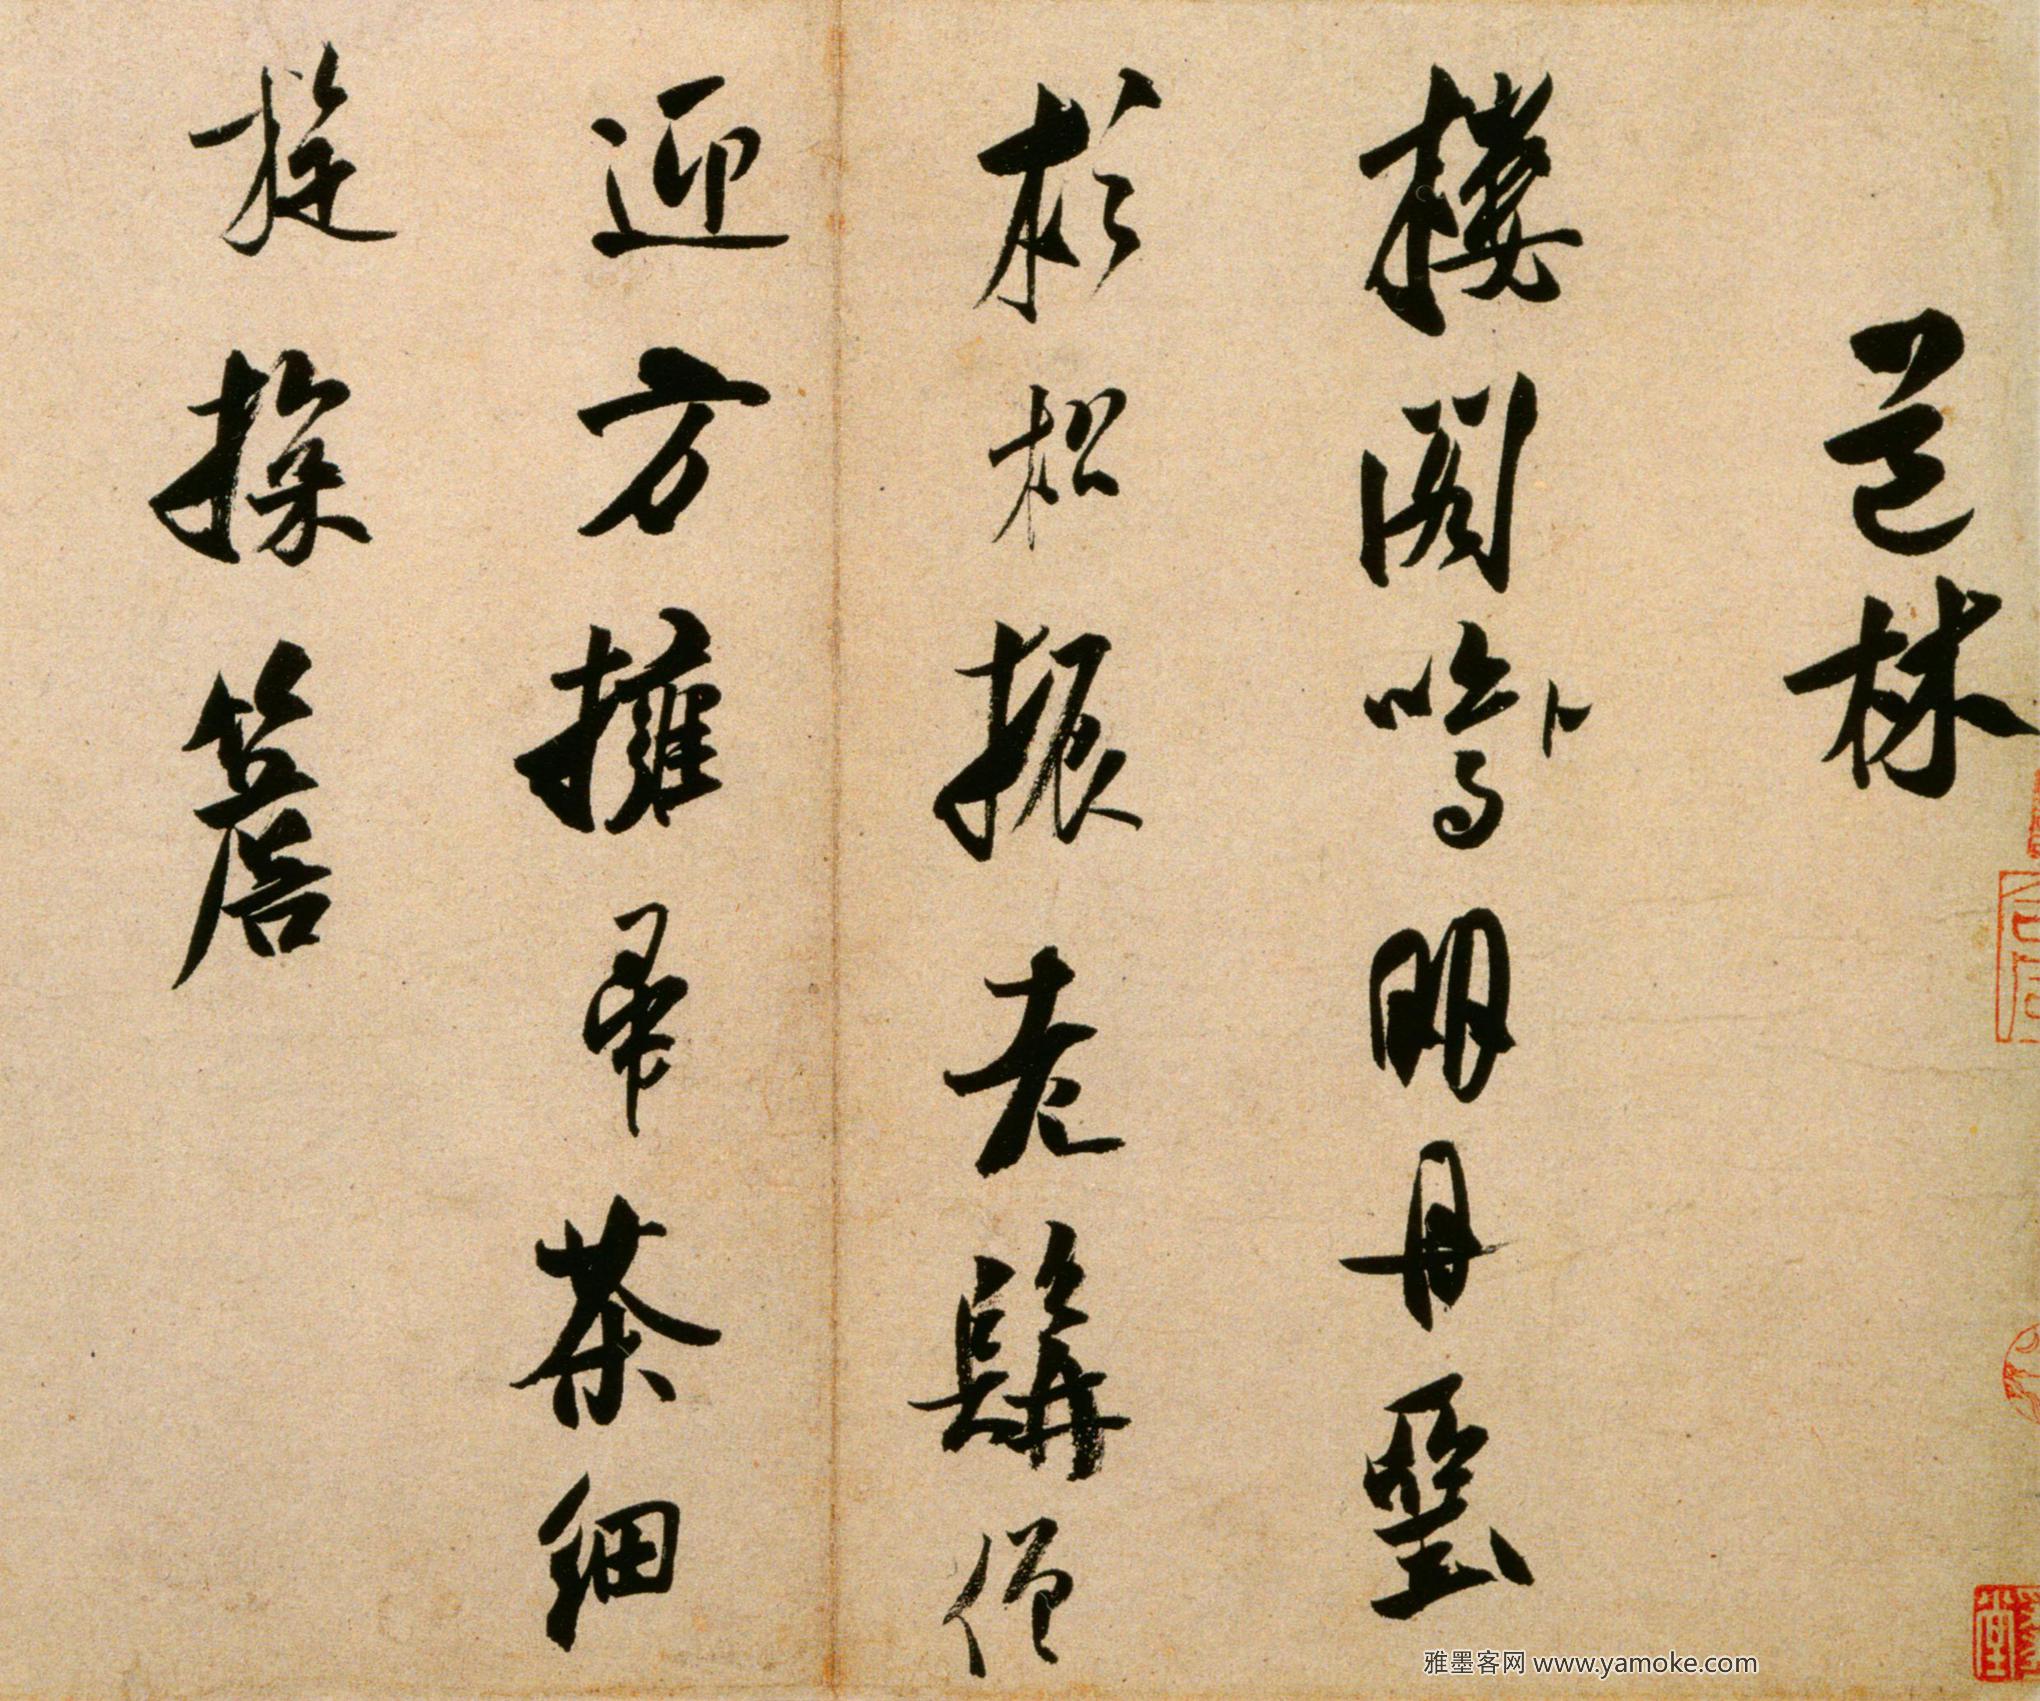 道林
樓閣鳴明丹堊
杉松振老髯僧
迎方擁帚茶細
旋探簷
雅墨客网 www.yamoke.com